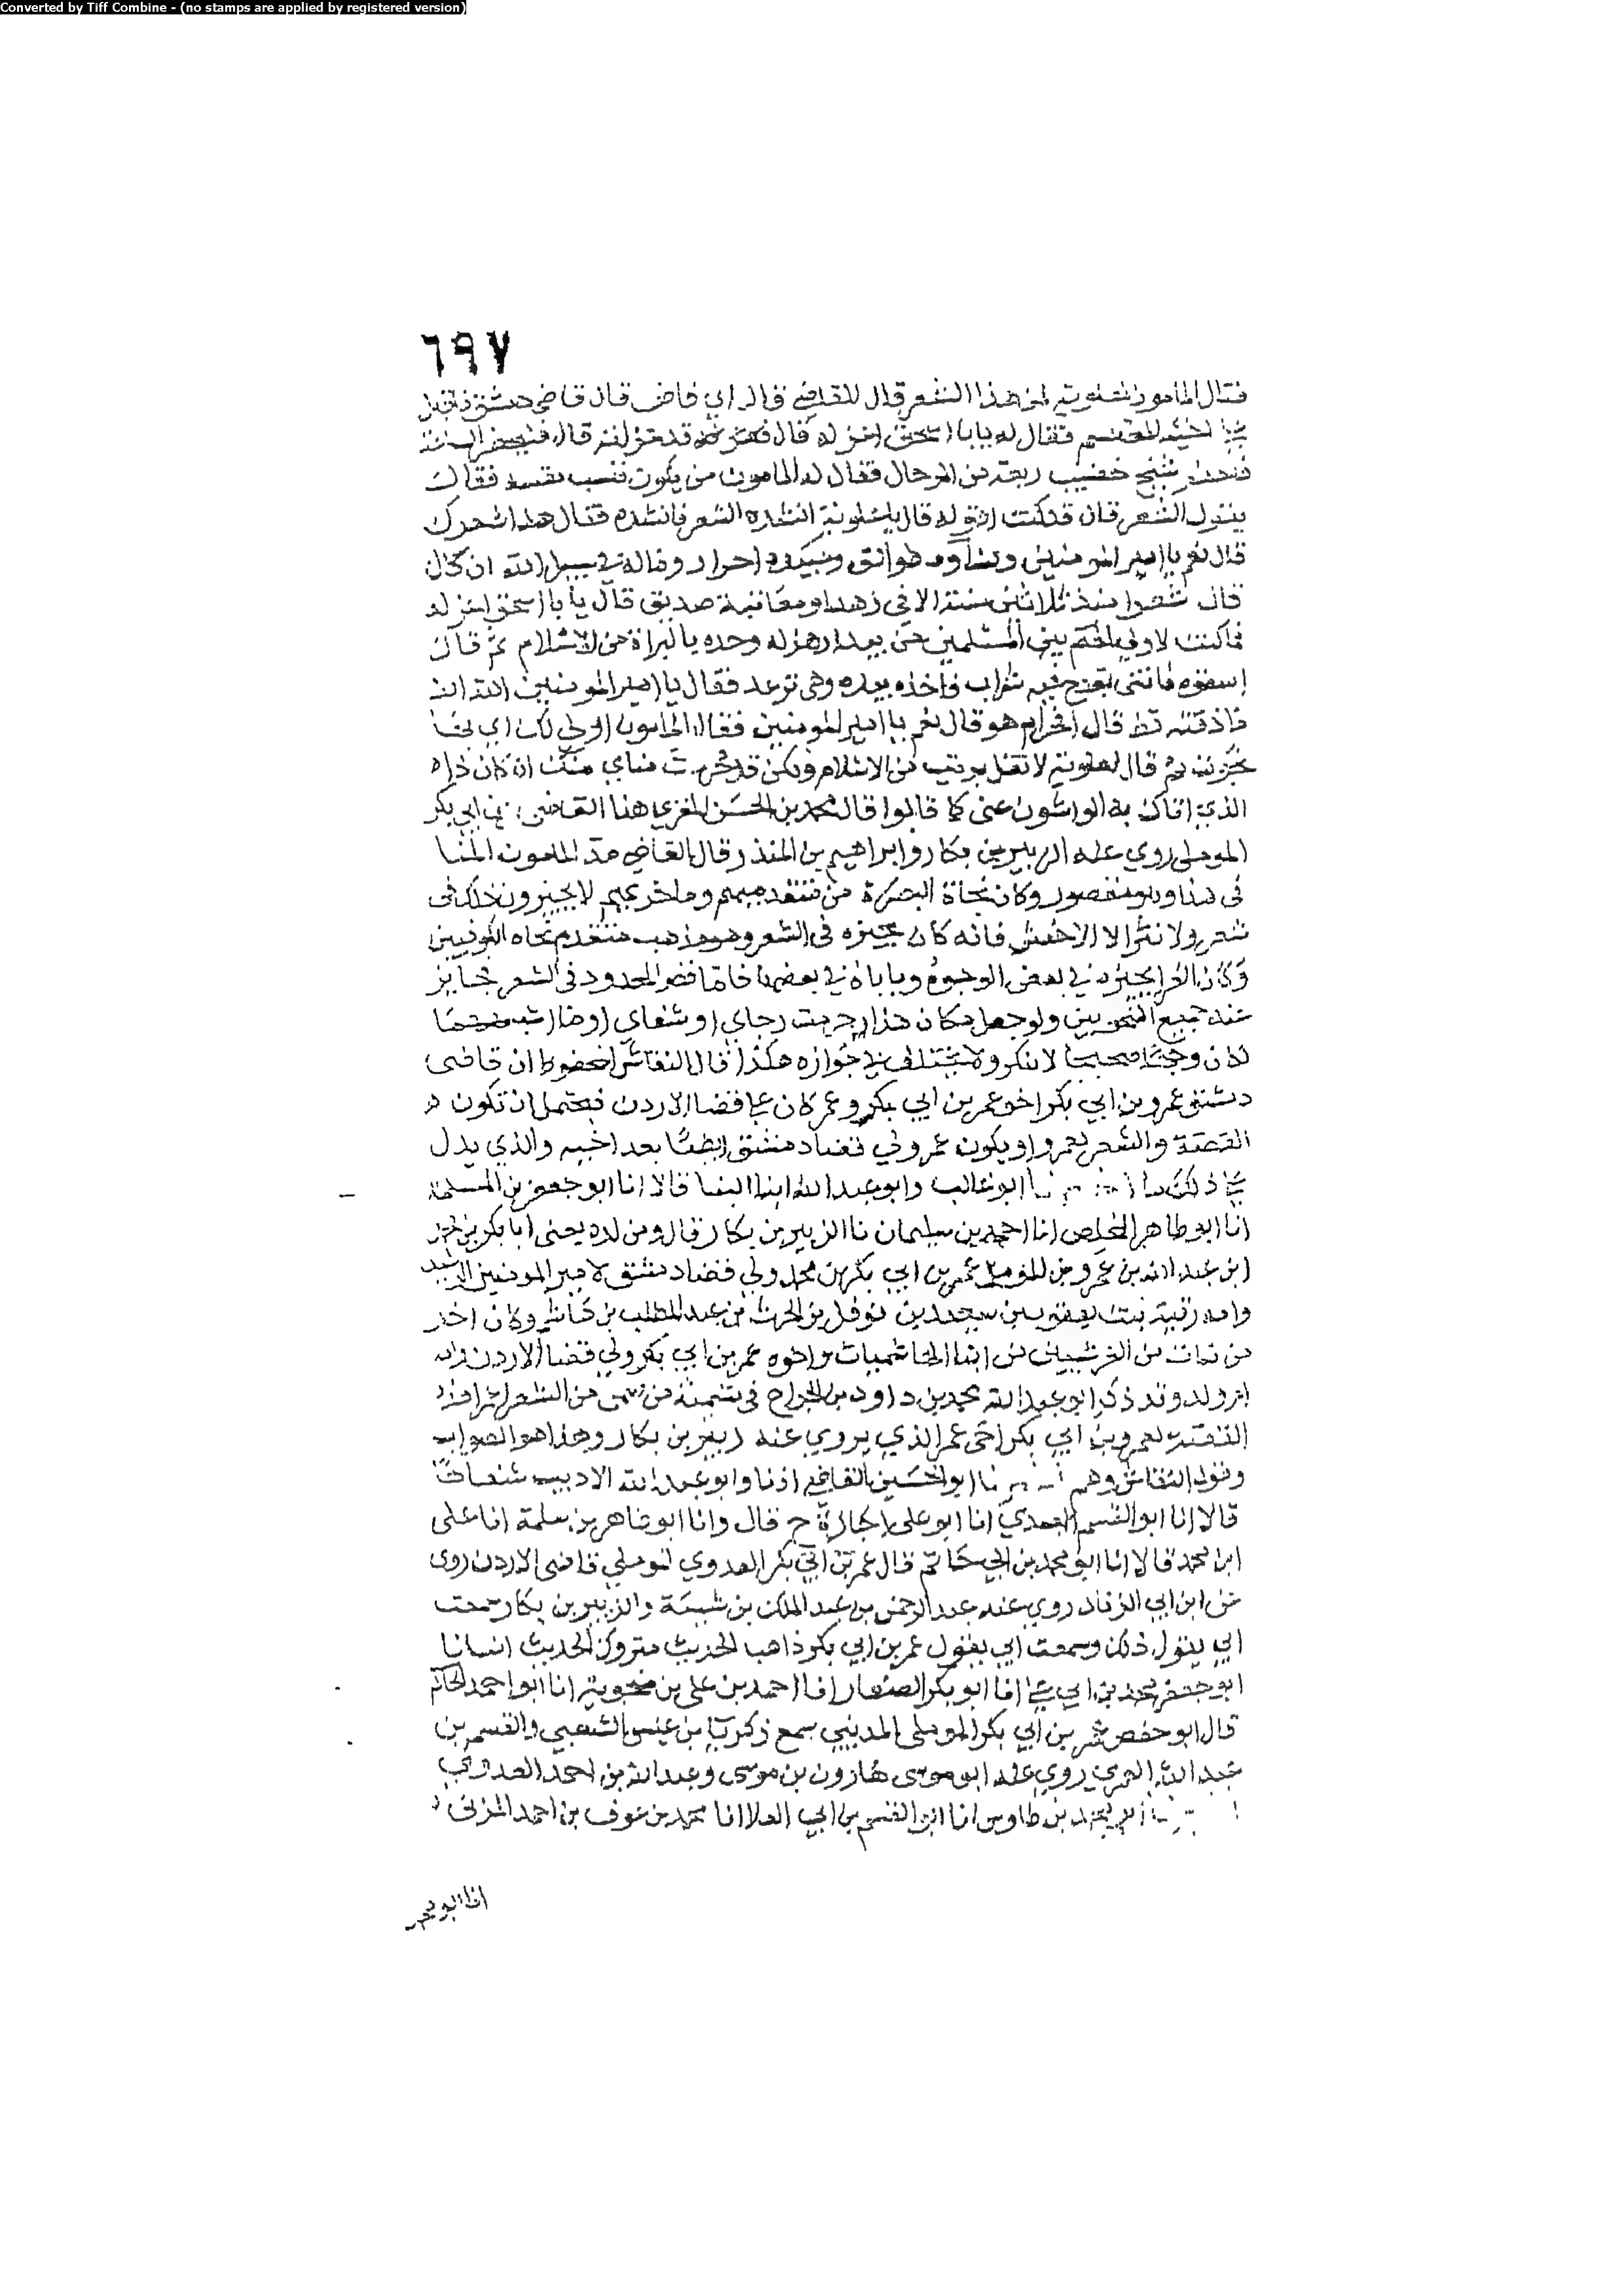 Converted by Tiff Combine - (no stamps are applied by registered version)
٦٩٧
فقال المامون لعلويه لمن هذا الشعر قال للقاضي قال اي قاض قال قاضي دمشق فاقبل
على اخيه المعتصم فقال له يابا اسحق اعزله قال قد عزلته قال فيحضر الساعة
فاحضر شيخ خضيب ربعة من الرجال فقال له المامون من تكون فنسب نفسه فقال
يقول الشعر قال قد كنت اقوله قال يا علويه انشده الشعر فانشده فقال هذا شعرك
قال نعم يا امير المومنين ونساوه طوالق وعبيده احرار وماله في سبيل الله ان كان
قال شعرا منذ ثلاثين سنة الا في زهد او معاتبة صديق قال يا با اسحق اعزله
فما كنت لاولي الحكم بين المسلمين من يبدا في هزله وحده بالبراة من الاسلام ثم قال
اسقوه فاتى بقدح فيه شراب فاخذه بيده وهي ترعد فقال يا امير المومنين الله الله
ما ذقته قط قال افحرام هو قال نعم يا امير المومنين فقال المامون اولى لك اي نجا
ثم قال لعلويه لا تقل بريت من الاسلام ولكن قل حرمت مناي منك ان كان ذا
الذي اتاك به الواشون عني كما قالوا قال محمد بن الحسن المقري هذا القاضي عمر بن ابي بكر
الموملي روي عنه الزبير بن بكار وابراهيم بن المنذر وقال القاضي مد المامون المنا
في هذا وهو مقصور وكان نحاة البصرة من متقدميهم ومتاخريهم لا يجيزون ذلك في
شعر ولا نثر الا الاخفش فانه كان يجيزه في الشعر وهو مذهب متقدم نحاة الكوفيين
وكان الفرا يجيزه في بعض الوجوه وياباه في بعضها فاما قصر الممدود في الشعر فجايز
عند جميع النحويين ولو جعل مكان هذا حرمت رجاي او شفاي او ما اشبههما
لكان وجها صحيحا لا ينكر ولا يختلف في جوازه هكذا قال النقاش المحفوظ ان قاضي
دمشق عمرو بن ابي بكر اخو عمر بن ابي بكر وعمر كان على قضا الاردن فيحتمل ان تكون
القصة والشعر لعمرو او يكون عمر ولي قضا دمشق ايضا بعد اخيه والذي يدل
على ذلك ما ابو غالب وابو عبد الله ابنا البنا قالا انا ابو جعفر بن المسلمة
انا ابو طاهر المخلص انا احمد بن سليمان نا الزبير بن بكار قال ومن ولده يعني ابا بكر بن محمد
ابن عبد الله بن عمرو بن المومل عمرو بن ابي بكر بن محمد ولي قضا دمشق لامير المومنين الرشيد
وامه رقية بنت يعقوب بن سعيد بن نوفل بن الحرث بن عبد المطلب بن هاشم وكان اخر
من مات من القرشيين من ابنا الهاشميات واخوه عمر بن ابي بكر ولي قضا الاردن وامه
ام ولد وقد ذكر ابو عبد الله محمد بن داود بن الجراح في تسمية من سمي من الشعرا عمرا هذه
القصة لعمرو بن ابي بكر اخي عمر الذي يروي عنه زبير بن بكار وهذا هو الصواب
وقول النقاش وهم انا ابو الحسين القاضي اذنا وابو عبد الله الاديب شفاها
قالا انا ابو القسم العبدي انا ابو علي اجازة ح قال وانا ابو طاهر بن سلمة انا علي
ابن محمد قالا انا ابو محمد بن ابي حاتم قال عمر بن ابي بكر العدوي الموملي قاضي الاردن روى
عن ابن ابي الزناد روي عنه عبد الرحمن بن عبد الملك بن شيبة والزبير بن بكار سمعت
ابي يقول ذلك وسمعت ابي يقول عمر بن ابي بكر ذاهب الحديث متروك الحديث انبانا
ابو جعفر محمد بن ابي علي انا ابو بكر الصفار انا احمد بن علي بن منجويه انا ابو احمد الحاكم
قال ابو حفص عمر بن ابي بكر الموملي المديني سمع زكريا بن عيسى الشعبي والقسم بن
عبد الله العمري روي عنه ابو موسى هارون بن موسى وعبد الله بن احمد العدوي
ابو محمد بن طاوس انا ابو القسم بن ابي العلا انا محمد بن عوف بن احمد المزني
انا ابو محمد